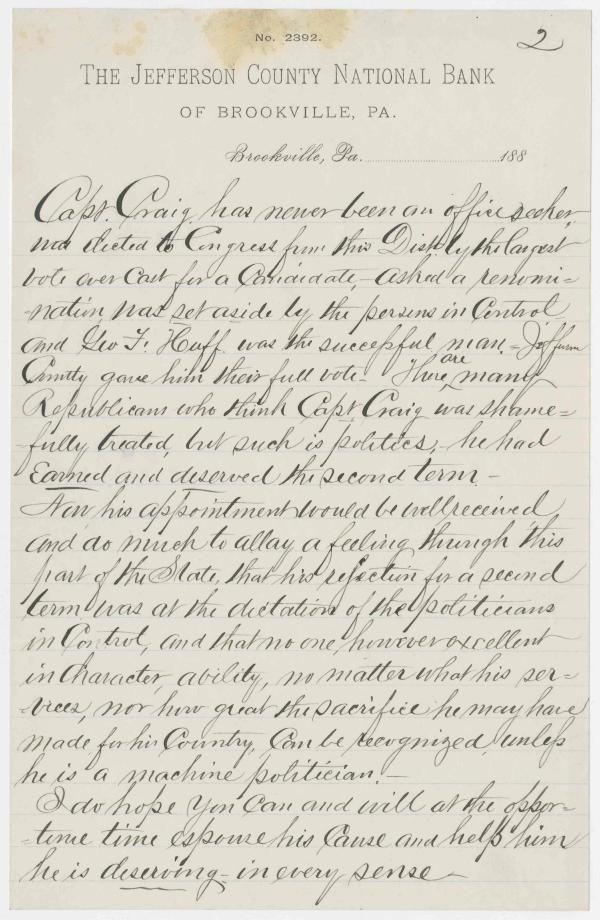 No. 2392.
2
THE JEFFERSON COUNTY NATIONAL BANK
OF BROOKVILLE, PA.
Brookville, Pa. 188
Capt. Craig has never been an office seeker,
was elected to Congress from this Dist by the largest
vote ever cast for a Candidate, - asked a renomi=
-nation, was set aside by the persons in Control
and Geo F. Huff was the successful man. - Jefferson
County gave him their full vote - There are many
Republicans who think Capt Craig was shame=
-fully treated, but such is politics, - he had
Earned and deserved the second term -
Now his appointment would be well received,
and do much to allay a feeling through this
part of the State, that his rejection for a second
term was at the dictation of the politicians
in Control, and that no one, however excellent
in Character, ability, no matter what his ser=
-vices, nor how great the sacrifice he may have
made for his Country, Can be recognized unless
he is a machine politician. -
I do hope you Can and will at the oppor=
-tune time espouse his Cause and help him
he is deserving - in every sense -